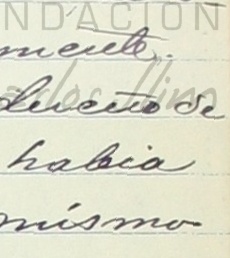 NDACION
mente.
dueño de
había
mismo